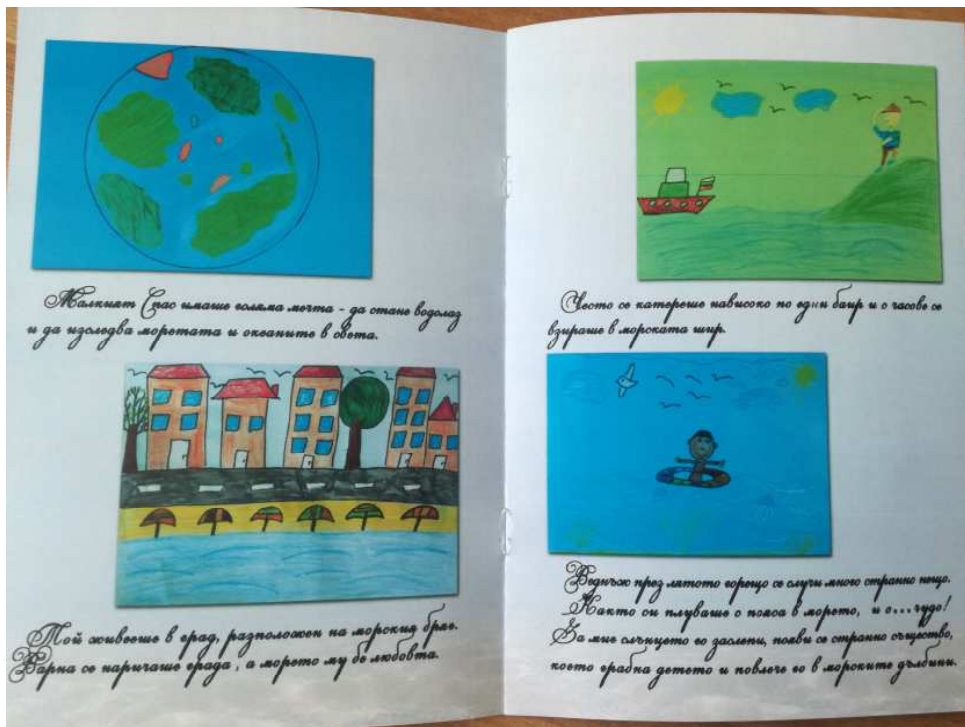 Малкият Спас имаше голяма мечта - да стане водолаз
и да изследва моретата и океаните в света.
Той живееше в град, разположен на морския бряг.
Варна се наричаше града, а морето му бе любовта.
Често се катереше нависоко по едни баир и с часове се
взираше в морската шир.
Веднъж през лятото горещо се случи много странно нещо.
Както си плуваше с пояса в морето, и о...чудо!
За миг слънцето го заслепи, появи се странно същество,
което грабна детето и повлече го в морските дълбини.